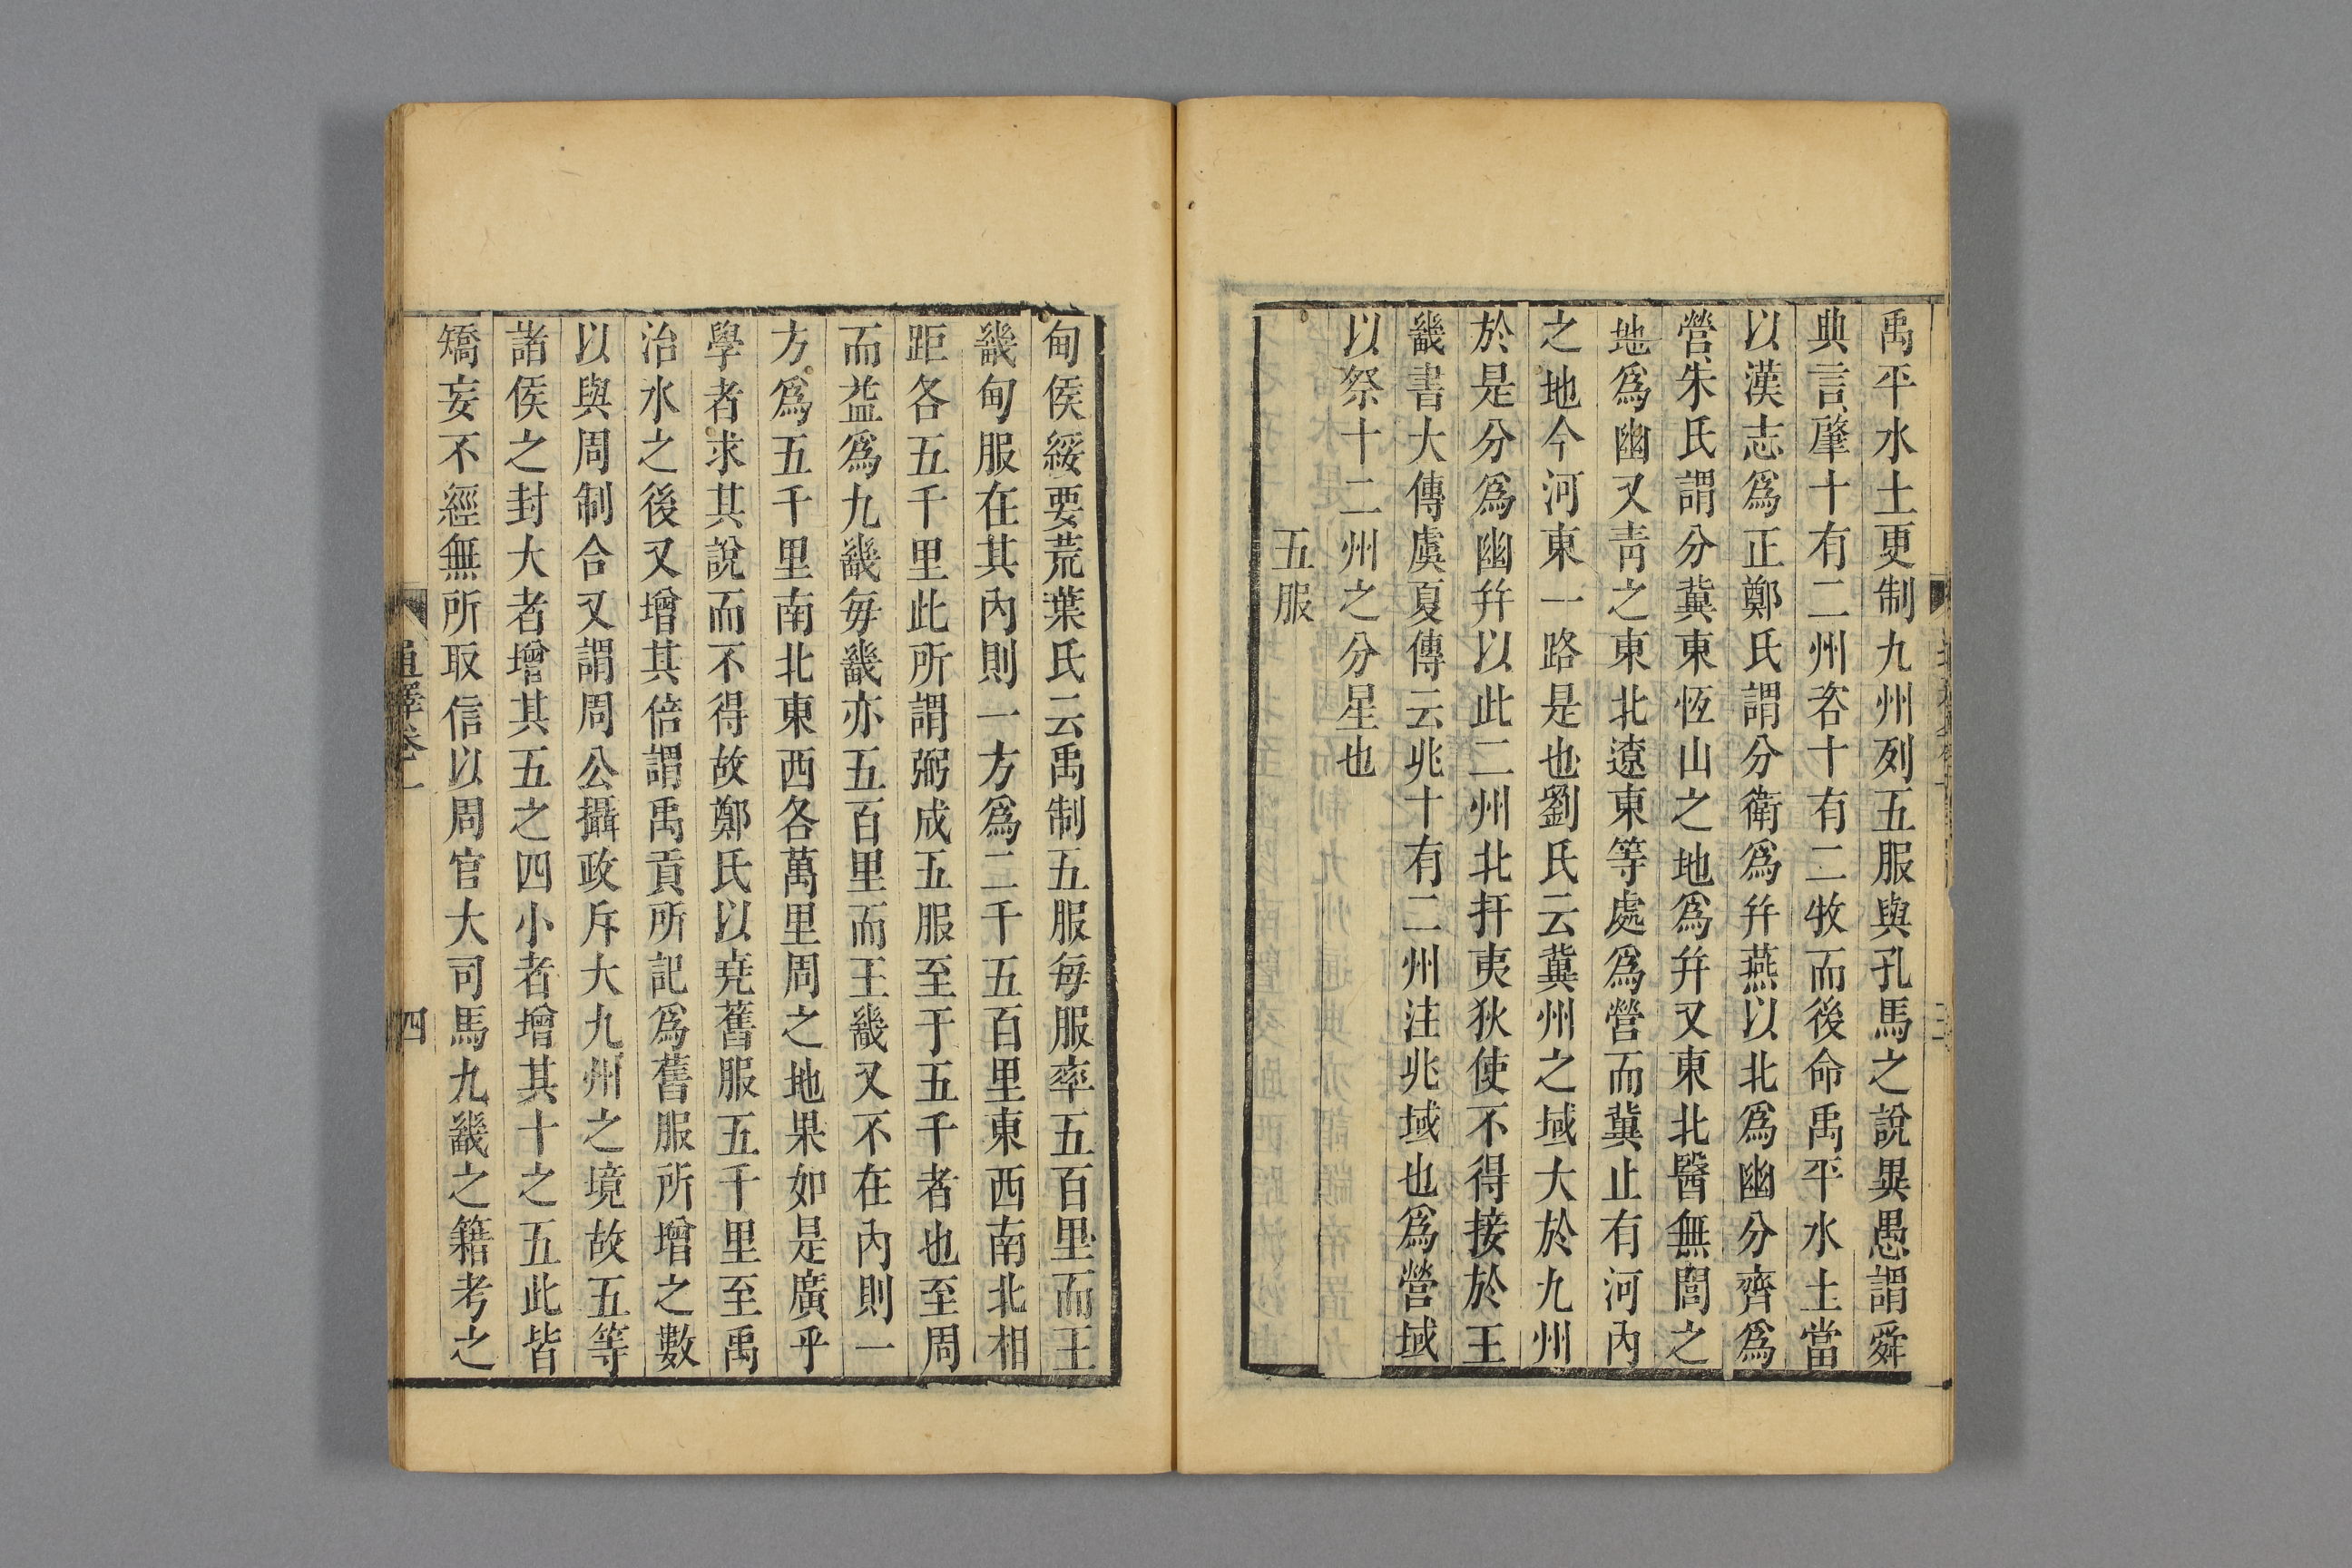 禹平水土更制九州列五服與孔馬之說異愚謂舜
典言肇十有二州咨十有二牧而後命禹平水土當
以漢志爲正鄭氏謂分衛爲幷燕以北爲幽分齊爲
營朱氏謂分冀東恆山之地爲幷又東北醫無閭之
地爲幽又靑之東北遼東等處爲營而冀止有河內
之地今河東一路是也劉氏云冀州之域大於九州
於是分爲幽幷以此二州北扞夷狄使不得接於王
畿書大傳虞夏傳云兆十有二州注兆域也爲營域
以祭十二州之分星也
五服
甸侯綏要荒葉氏云禹制五服每服率五百里而王
畿甸服在其內則一方爲二千五百里東西南北相
距各五千里此所謂弼成五服至于五千者也至周
而益爲九畿每畿亦五百里而王畿又不在內則一
方爲五千里南北東西各萬里周之地果如是廣乎
學者求其說而不得故鄭氏以堯舊服五千里至禹
治水之後又增其倍謂禹貢所記爲舊服所增之數
以與周制合又謂周公攝政斥大九州之境故五等
諸侯之封大者增其五之四小者增其十之五此皆
矯妄不經無所取信以周官大司馬九畿之籍考之
四